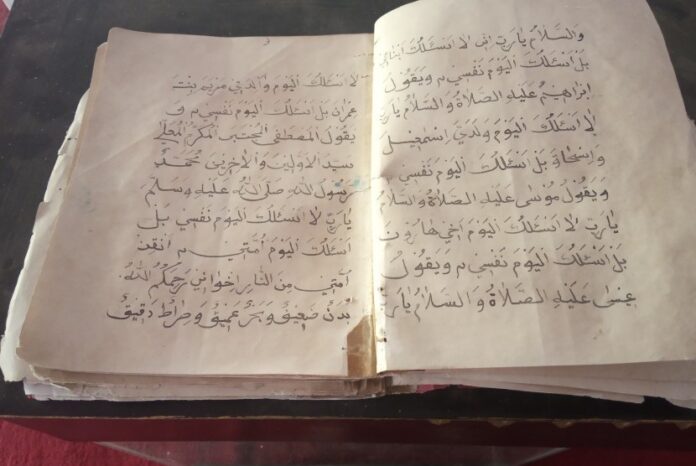 والسَّلامُ يَا رَبِّ اِنِّي لَا اَسْئَلُكَ
بَلْ اَسْئَلُكَ الْيَوْمَ نَفْسِي م وَيَقُولُ
اِبْرَاهِيمُ عَلَيْهِ الصَّلَاةُ وَالسَّلَامُ يَارَبِّ
لَا اَسْئَلُكَ الْيَوْمَ وَلَدَيَّ اِسْمَعِيلَ
وَاِسْحَاقَ بَلْ اَسْئَلُكَ الْيَوْمَ نَفْسِي م
وَيَقُولُ مُوسَى عَلَيْهِ الصَّلَاةُ وَالسَّلَامُ
يَارَبِّ لَا اَسْئَلُكَ الْيَوْمَ اَخِي هَارُونَ
بَلْ اَسْئَلُكَ الْيَوْمَ نَفْسِي م وَيَقُولُ
عِيسَى عَلَيْهِ الصَّلَاةُ وَالسَّلَامُ يَارَبِّ
لَا اَسْئَلُكَ الْيَوْمَ وَالِدَتِي مَرْيَمَ بِنْتَ
عِمْرَانَ بَلْ اَسْئَلُكَ الْيَوْمَ نَفْسِي م وَ
يَقُولُ الْمُصْطَفَى الْمُكَرَّمُ الْمُعَلَّى
سَيِّدُ الْاَوَّلِينَ وَالْاٰخِرِينَ مُحَمَّدٌ
رَسُولُ اللهِ صَلَّى اللهُ عَلَيْهِ وَسَلَّمَ
يَارَبِّ لَا اَسْئَلُكَ الْيَوْمَ نَفْسِي بَلْ
اَسْئَلُكَ الْيَوْمَ اُمَّتِي م
اُمَّتِي مِنَ النَّارِ اِخْوَانِي رَحِمَكُمُ اللهُ
بَدَنٌ ضَعِيفٌ وَبَحْرٌ عَمِيقٌ وَصِرَاطٌ دَقِيقٌ